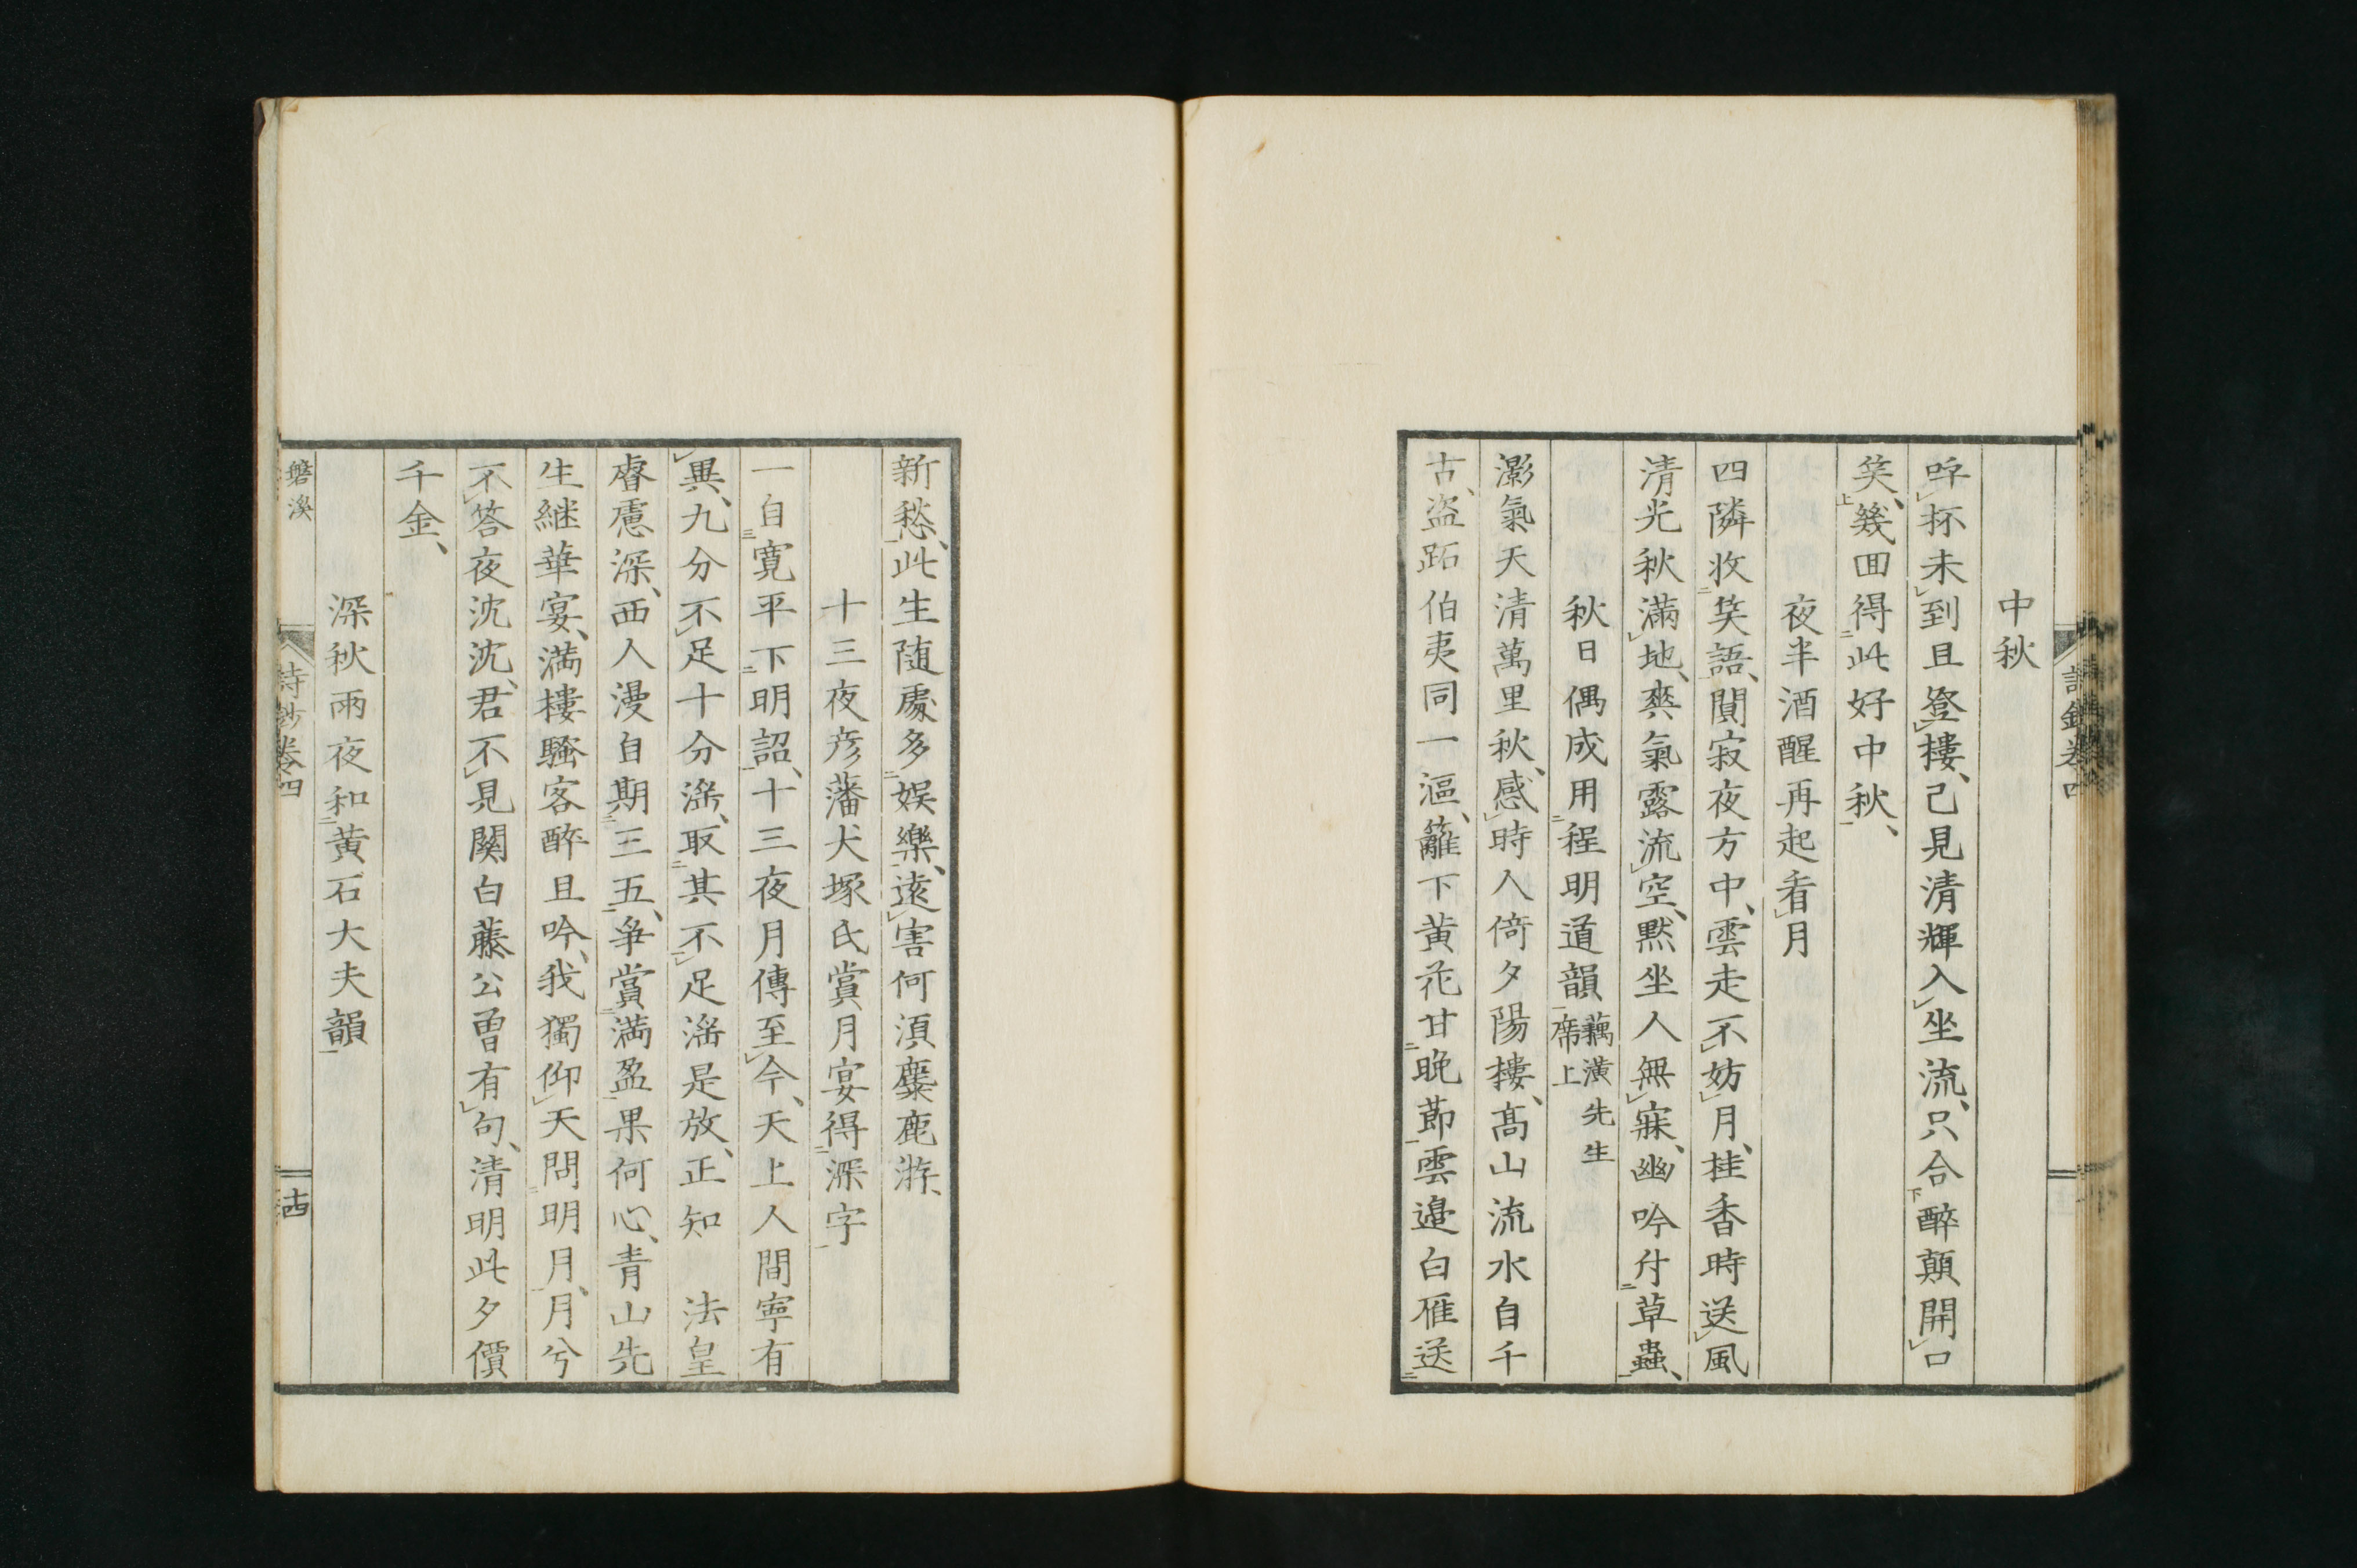 中秋
呼杯未到且登樓、已見清輝入坐流、只合醉顛開口
笑、幾囬得此好中秋、
夜半酒醒再起看月
四隣收笑語、閴寂夜方中、雲走不妨月、桂香時送風
清光秋滿地、爽氣露流空、默坐人無寐、幽吟付草蟲、
秋日偶成用程明道韻 藕潢先生席上
灝氣天清萬里秋、感時人倚夕陽樓、髙山流水自千
古、盗跖伯夷同一漚、籬下黄花甘晩節雲邉白雁送
新愁、此生随處多娯樂、遠害何湏麋鹿游、
十三夜彦藩犬塚氏賞月宴得深字
一自寛平下明詔、十三夜月傳至今、天上人間寧有
異、九分不足十分滛、取其不足滛是放、正知 法皇
睿慮深、西人漫自期三五、争賞満盈果何心、青山先
生継華宴、満樓騷客醉且吟、我獨仰天問明月、月兮
不答夜沈沈、君不見関白藤公曽有句、清明此夕價
千金、
深秋雨夜和黄石大夫韻
磐溪 詩鈔巻四 十四